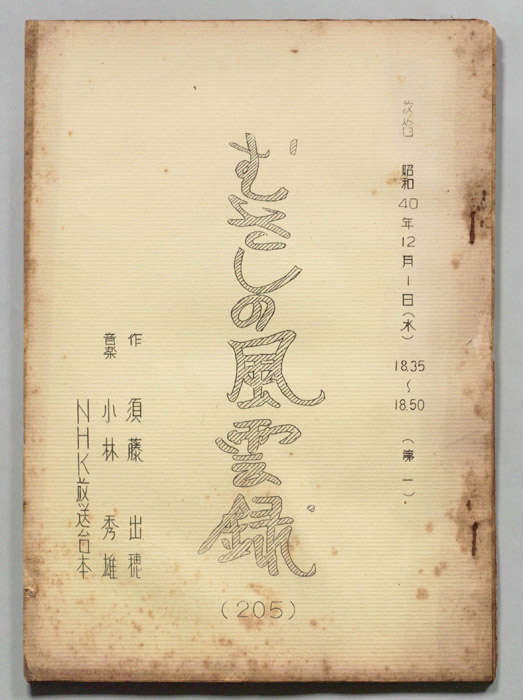 放送 昭和40年12月1日(水) 18.35~18.50 (第一)
むさしの風雲録
(205)
作 須藤出穂
音楽 小林秀雄
NHK放送台本